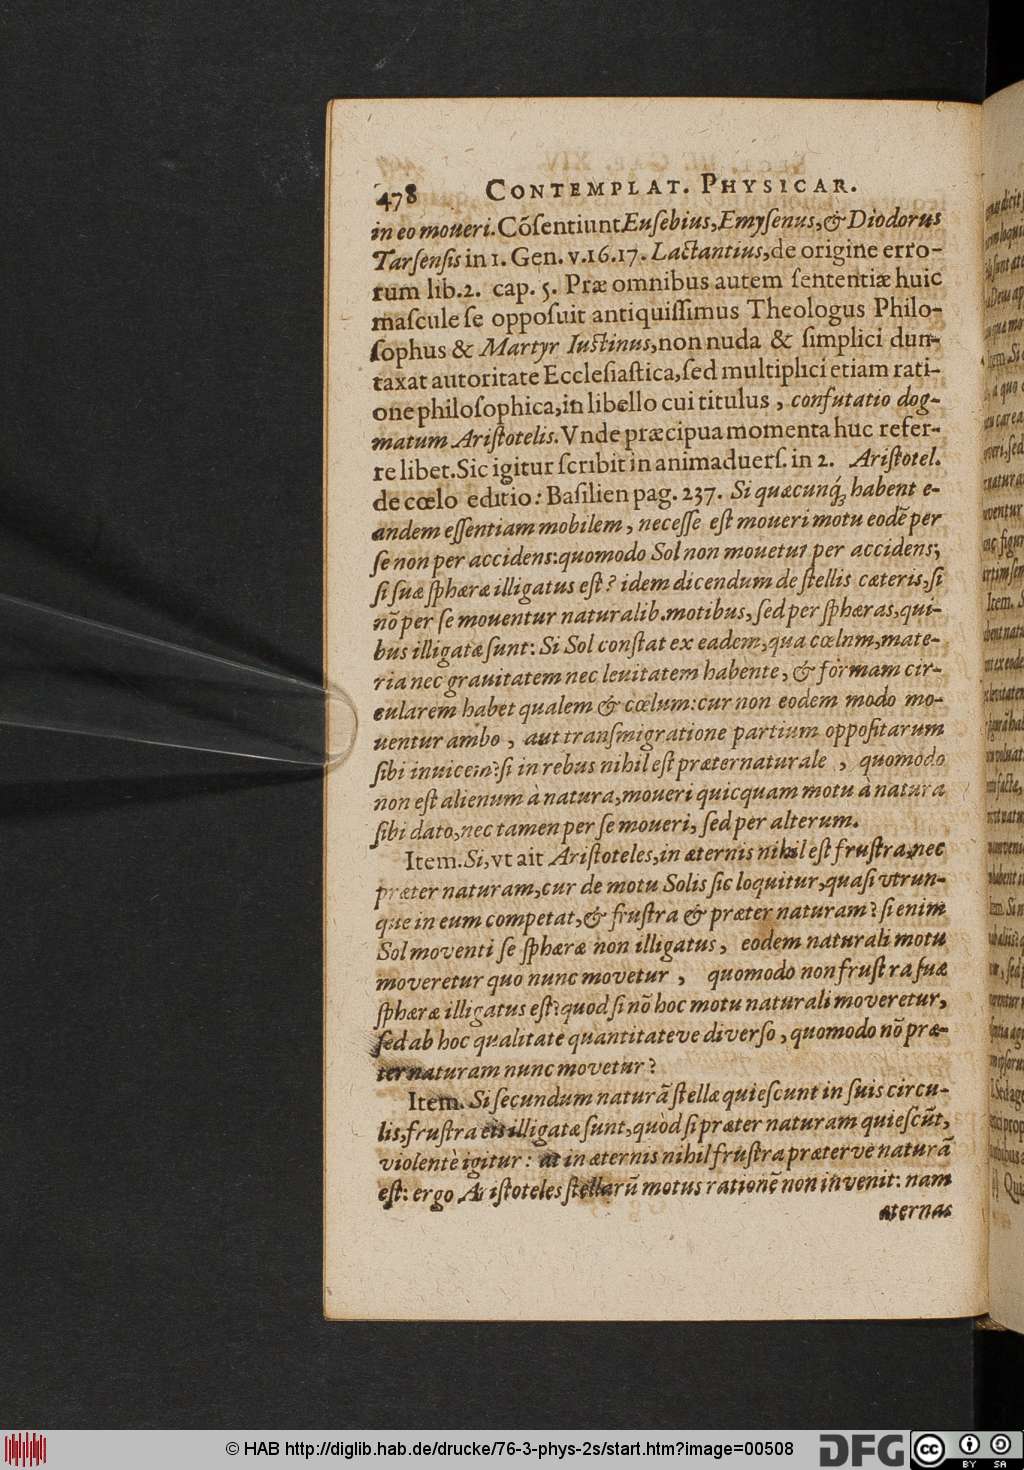 478 CONTEMPLAT. PHYSICAR.
in eo moueri. Cõſentiunt Euſebius, Emyſenus, & Diodorus
Tarſenſis in 1. Gen. v. 16. 17. Lactantius, de origine erro-
rum lib. 2. cap. 5. Præ omnibus autem ſententiæ huic
maſcule ſe oppoſuit antiquiſſimus Theologus Philo-
ſophus & Martyr Iuſtinus, non nuda & ſimplici dun-
taxat autoritate Eccleſiaſtica, ſed multiplici etiam rati-
one philoſophica, in libello cui titulus, confutatio dog-
matum Ariſtotelis. Vnde præcipua momenta huc refer-
re libet. Sic igitur ſcribit in animaduerſ. in 2. Ariſtotel.
de cœlo editio: Baſilien pag. 237. Si quæcunq́; habent e-
andem eſſentiam mobilem, neceſſe eſt moueri motu eodẽ per
ſe non per accidens: quomodo Sol non mouetur per accidens,
ſi ſuæ ſphæræ illigatus eſt? idem dicendum de ſtellis cæteris, ſi
nõ per ſe mouentur naturalib. motibus, ſed per ſphæras, qui-
bus illigatæ ſunt: Si Sol conſtat ex eadem, qua cœlum, mate-
ria nec grauitatem nec leuitatem habente, & formam cir-
cularem habet qualem & cœlum: cur non eodem modo mo-
uentur ambo, aut tranſmigratione partium oppoſitarum
ſibi inuicem? ſi in rebus nihil eſt præternaturale, quomodo
non eſt alienum à natura, moueri quicquam motu à natura
ſibi dato, nec tamen per ſe moueri, ſed per alterum.
Item. Si, vt ait Ariſtoteles, in æternis nihil eſt fruſtra, nec
præter naturam, cur de motu Solis ſic loquitur, quaſi vtrun-
que in eum competat, & fruſtra & præter naturam? ſi enim
Sol moventi ſe ſphæræ non illigatus, eodem naturali motu
moveretur quo nunc movetur, quomodo non fruſtra ſuæ
ſphæræ illigatus eſt? quod ſi nõ hoc motu naturali moveretur,
ſed ab hoc qualitate quantitateve diverſo, quomodo nõ præ-
ter naturam nunc movetur?
Item. Si ſecundum naturã ſtellæ quieſcunt in ſuis circu-
lis, fruſtra eis illigatæ ſunt, quod ſi præter naturam quieſcũt,
violentè igitur: at in æternis nihil fruſtra præterve naturã
eſt: ergo Ariſtoteles ſtellarũ motus rationẽ non invenit: nam
æternas
© HAB http://diglib.hab.de/drucke/76-3-phys-2s/start.htm?image=00508
DFG
cc BY SA